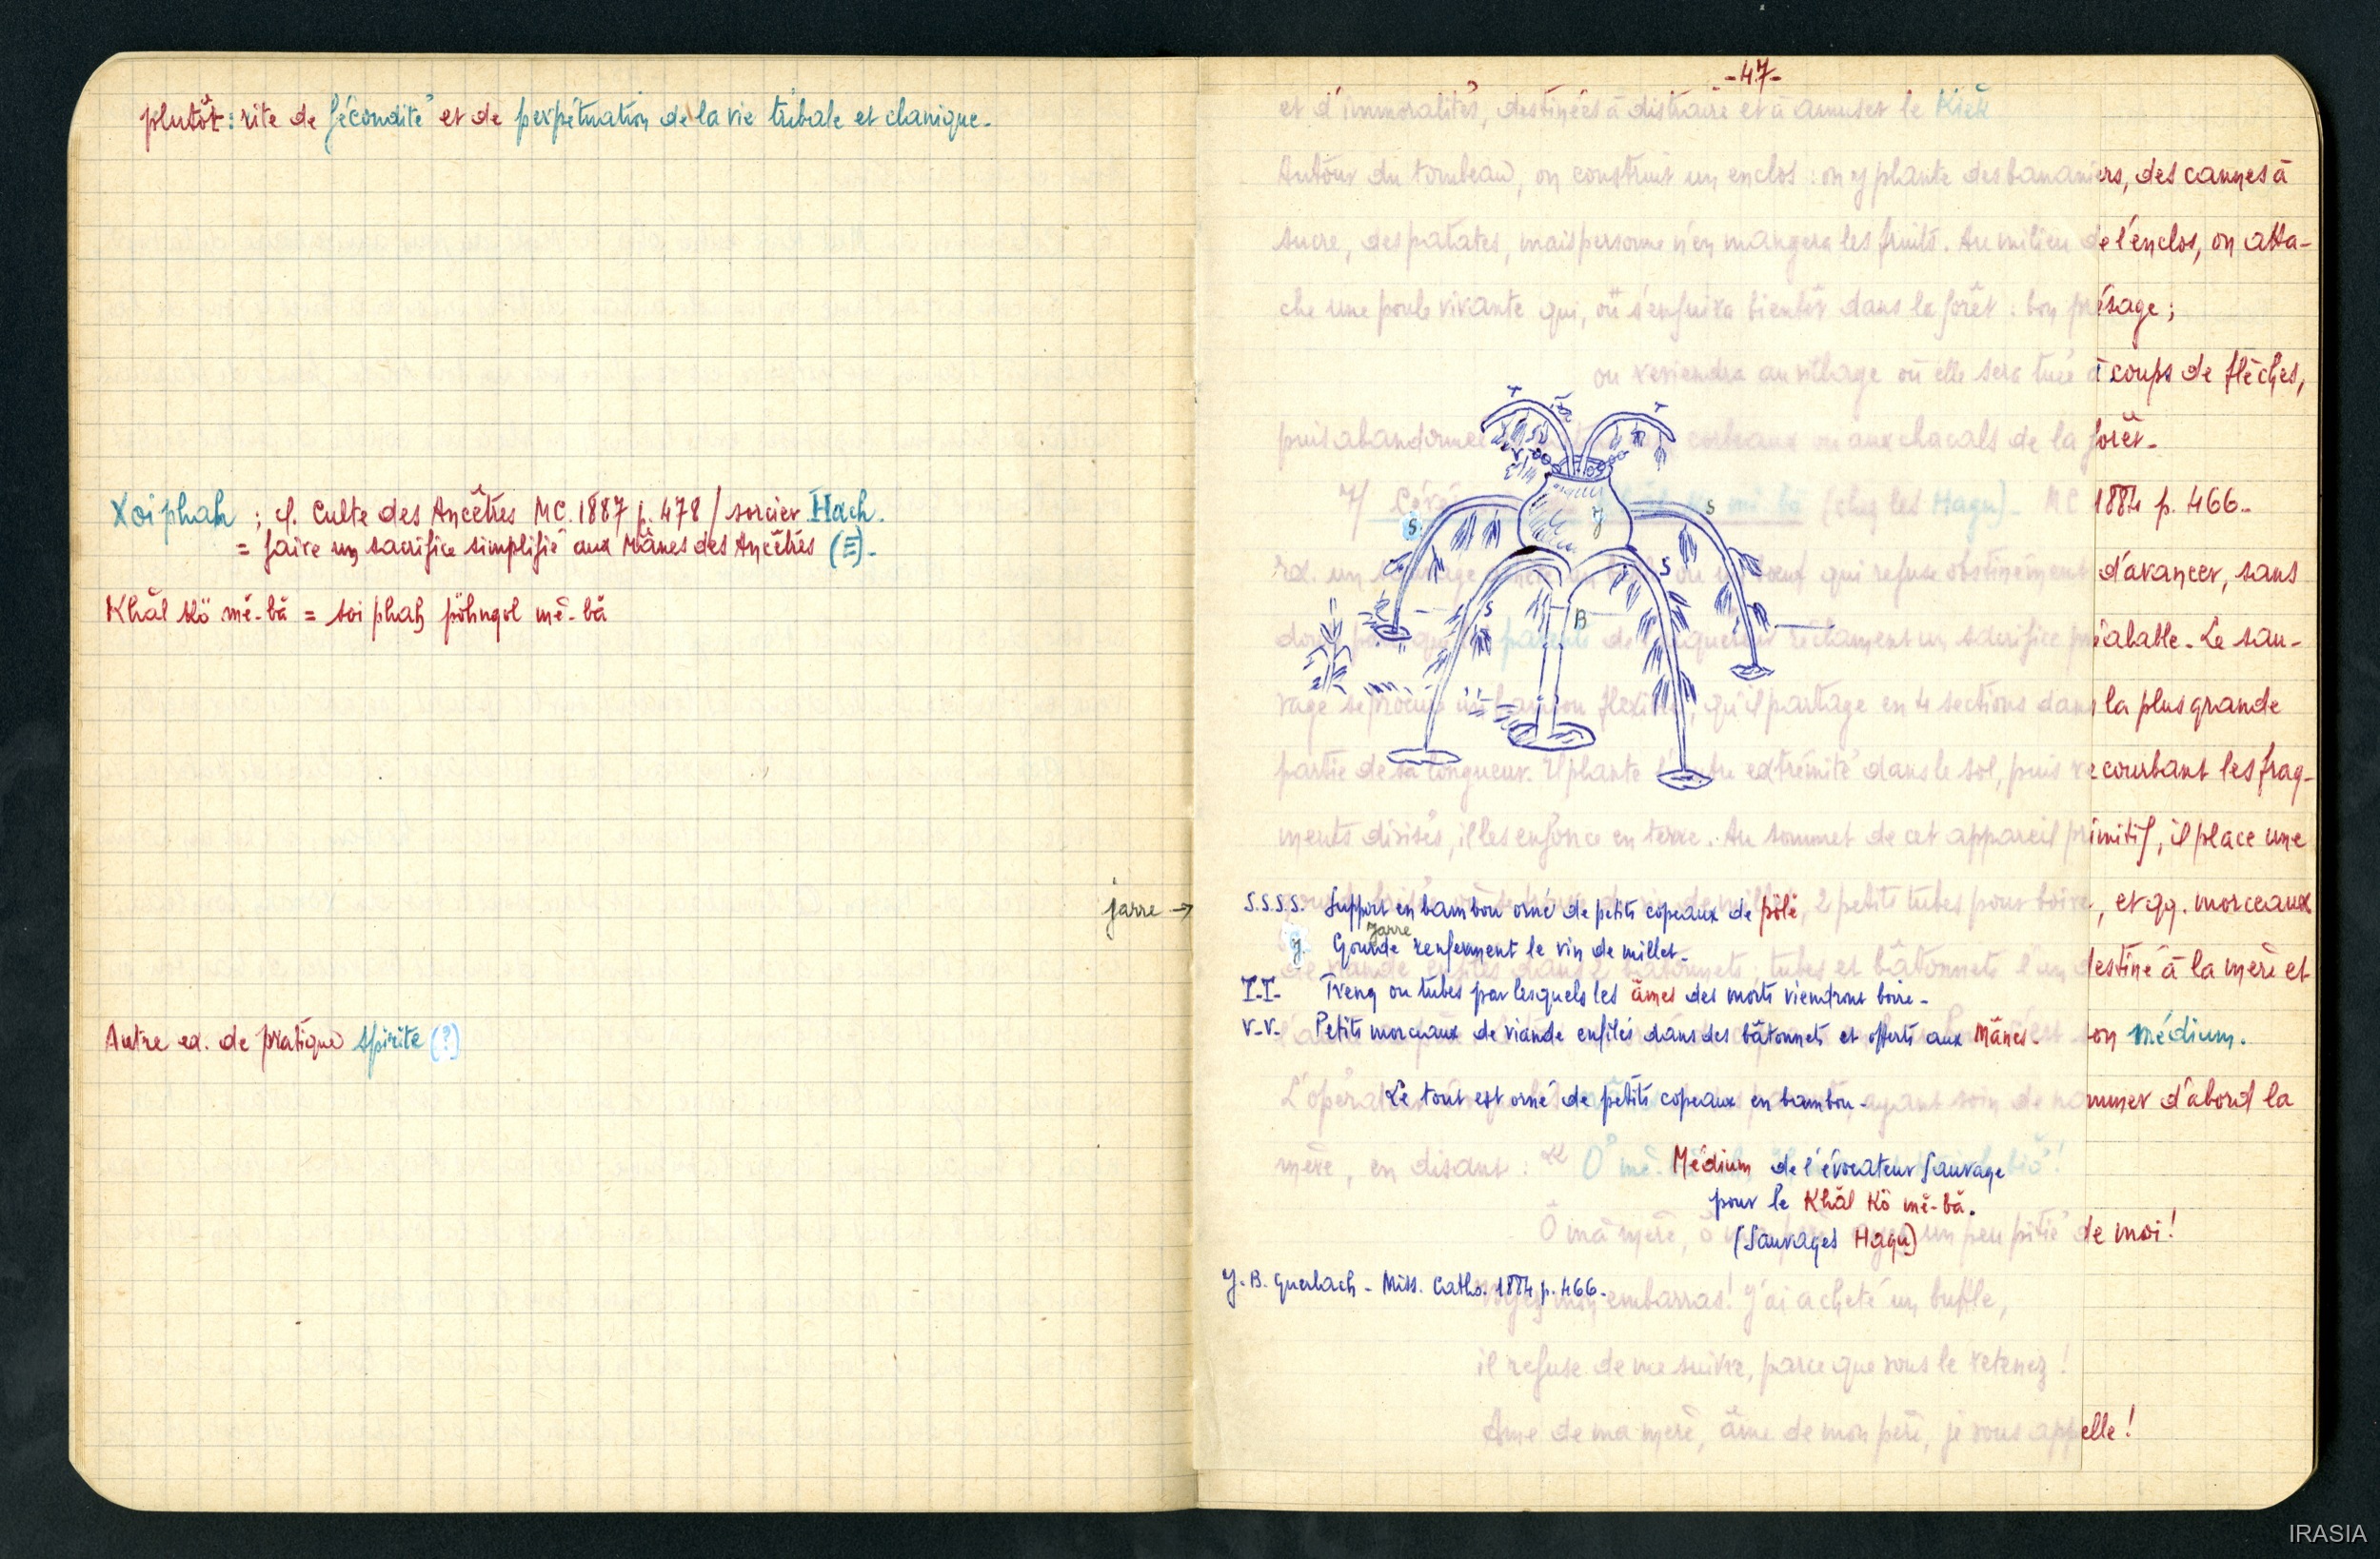 plutôt : rite de fécondité et de perpétuation de la vie tribale et clanique.
Xoi phah ; cf. Culte des Ancêtres MC. 1887 p. 478 / sorcier Hach.
= faire un sacrifice simplifié aux Mânes des Ancêtres (Ξ).
Khâl Kö mĕ-bă = soi phah pöhngol mĕ-bă
jarre →
Autre ex. de pratique spirite (?)
-47-
et d'immoralités, destinées à distraire et à amuser le Kiek
Autour du tombeau, on construit un enclos : on y plante des bananiers, des cannes à
sucre, des patates, mais personne n'en mangera les fruits. Au milieu de l'enclos, on atta-
che une poule vivante qui, où s'enfuira bientôt dans la forêt : bon présage ;
ou reviendra au village où elle sera tuée à coups de flèches,
puis abandonnée corbeaux ou aux chacals de la forêt.
7/ mĕ bă (chez les Hagu) - MC 1884 p. 466.
ex. un sauvage qui refuse obstinément d'avancer, sans
parents réclament un sacrifice préalable. Le sau-
vage se procure un bambou flexible, qu'il partage en 4 sections dans la plus grande
partie de sa longueur. Il plante l'autre extrémité dans le sol, puis recourbant les frag-
ments divisés, il les enfonce en terre. Au sommet de cet appareil primitif, il place une
2 petits tubes pour boire, et qq. morceaux
de viande enfilés dans 2 bâtonnets ; tubes et bâtonnets l'un destiné à la mère et
son médium.
L'opérateur ayant soin de nommer d'abord la
mère, en disant : « O mĕ
Ô ma mère, ô un peu pitié de moi !
embarras ! J'ai acheté un buffle,
il refuse de me suivre, parce que vous le retenez !
Ame de ma mère, âme de mon père, je vous appelle !
T T
S J S
S S
B
S.S.S.S. Support en bambou orné de petits copeaux de pölè
jarre
J. Gourde renfermant le vin de millet.
T-T- Treng ou tubes par lesquels les âmes des morts viendront boire -
V-V- Petits morceaux de viande enfilés dans des bâtonnets et offerts aux Mânes.
Le tout est orné de petits copeaux en bambou.
Médium de l'évocateur Sauvage
pour le Khâl Kö mĕ-bă.
(Sauvages Hagu)
J.B. Guerlach - Miss. Catho. 1884 p. 466.
IRASIA